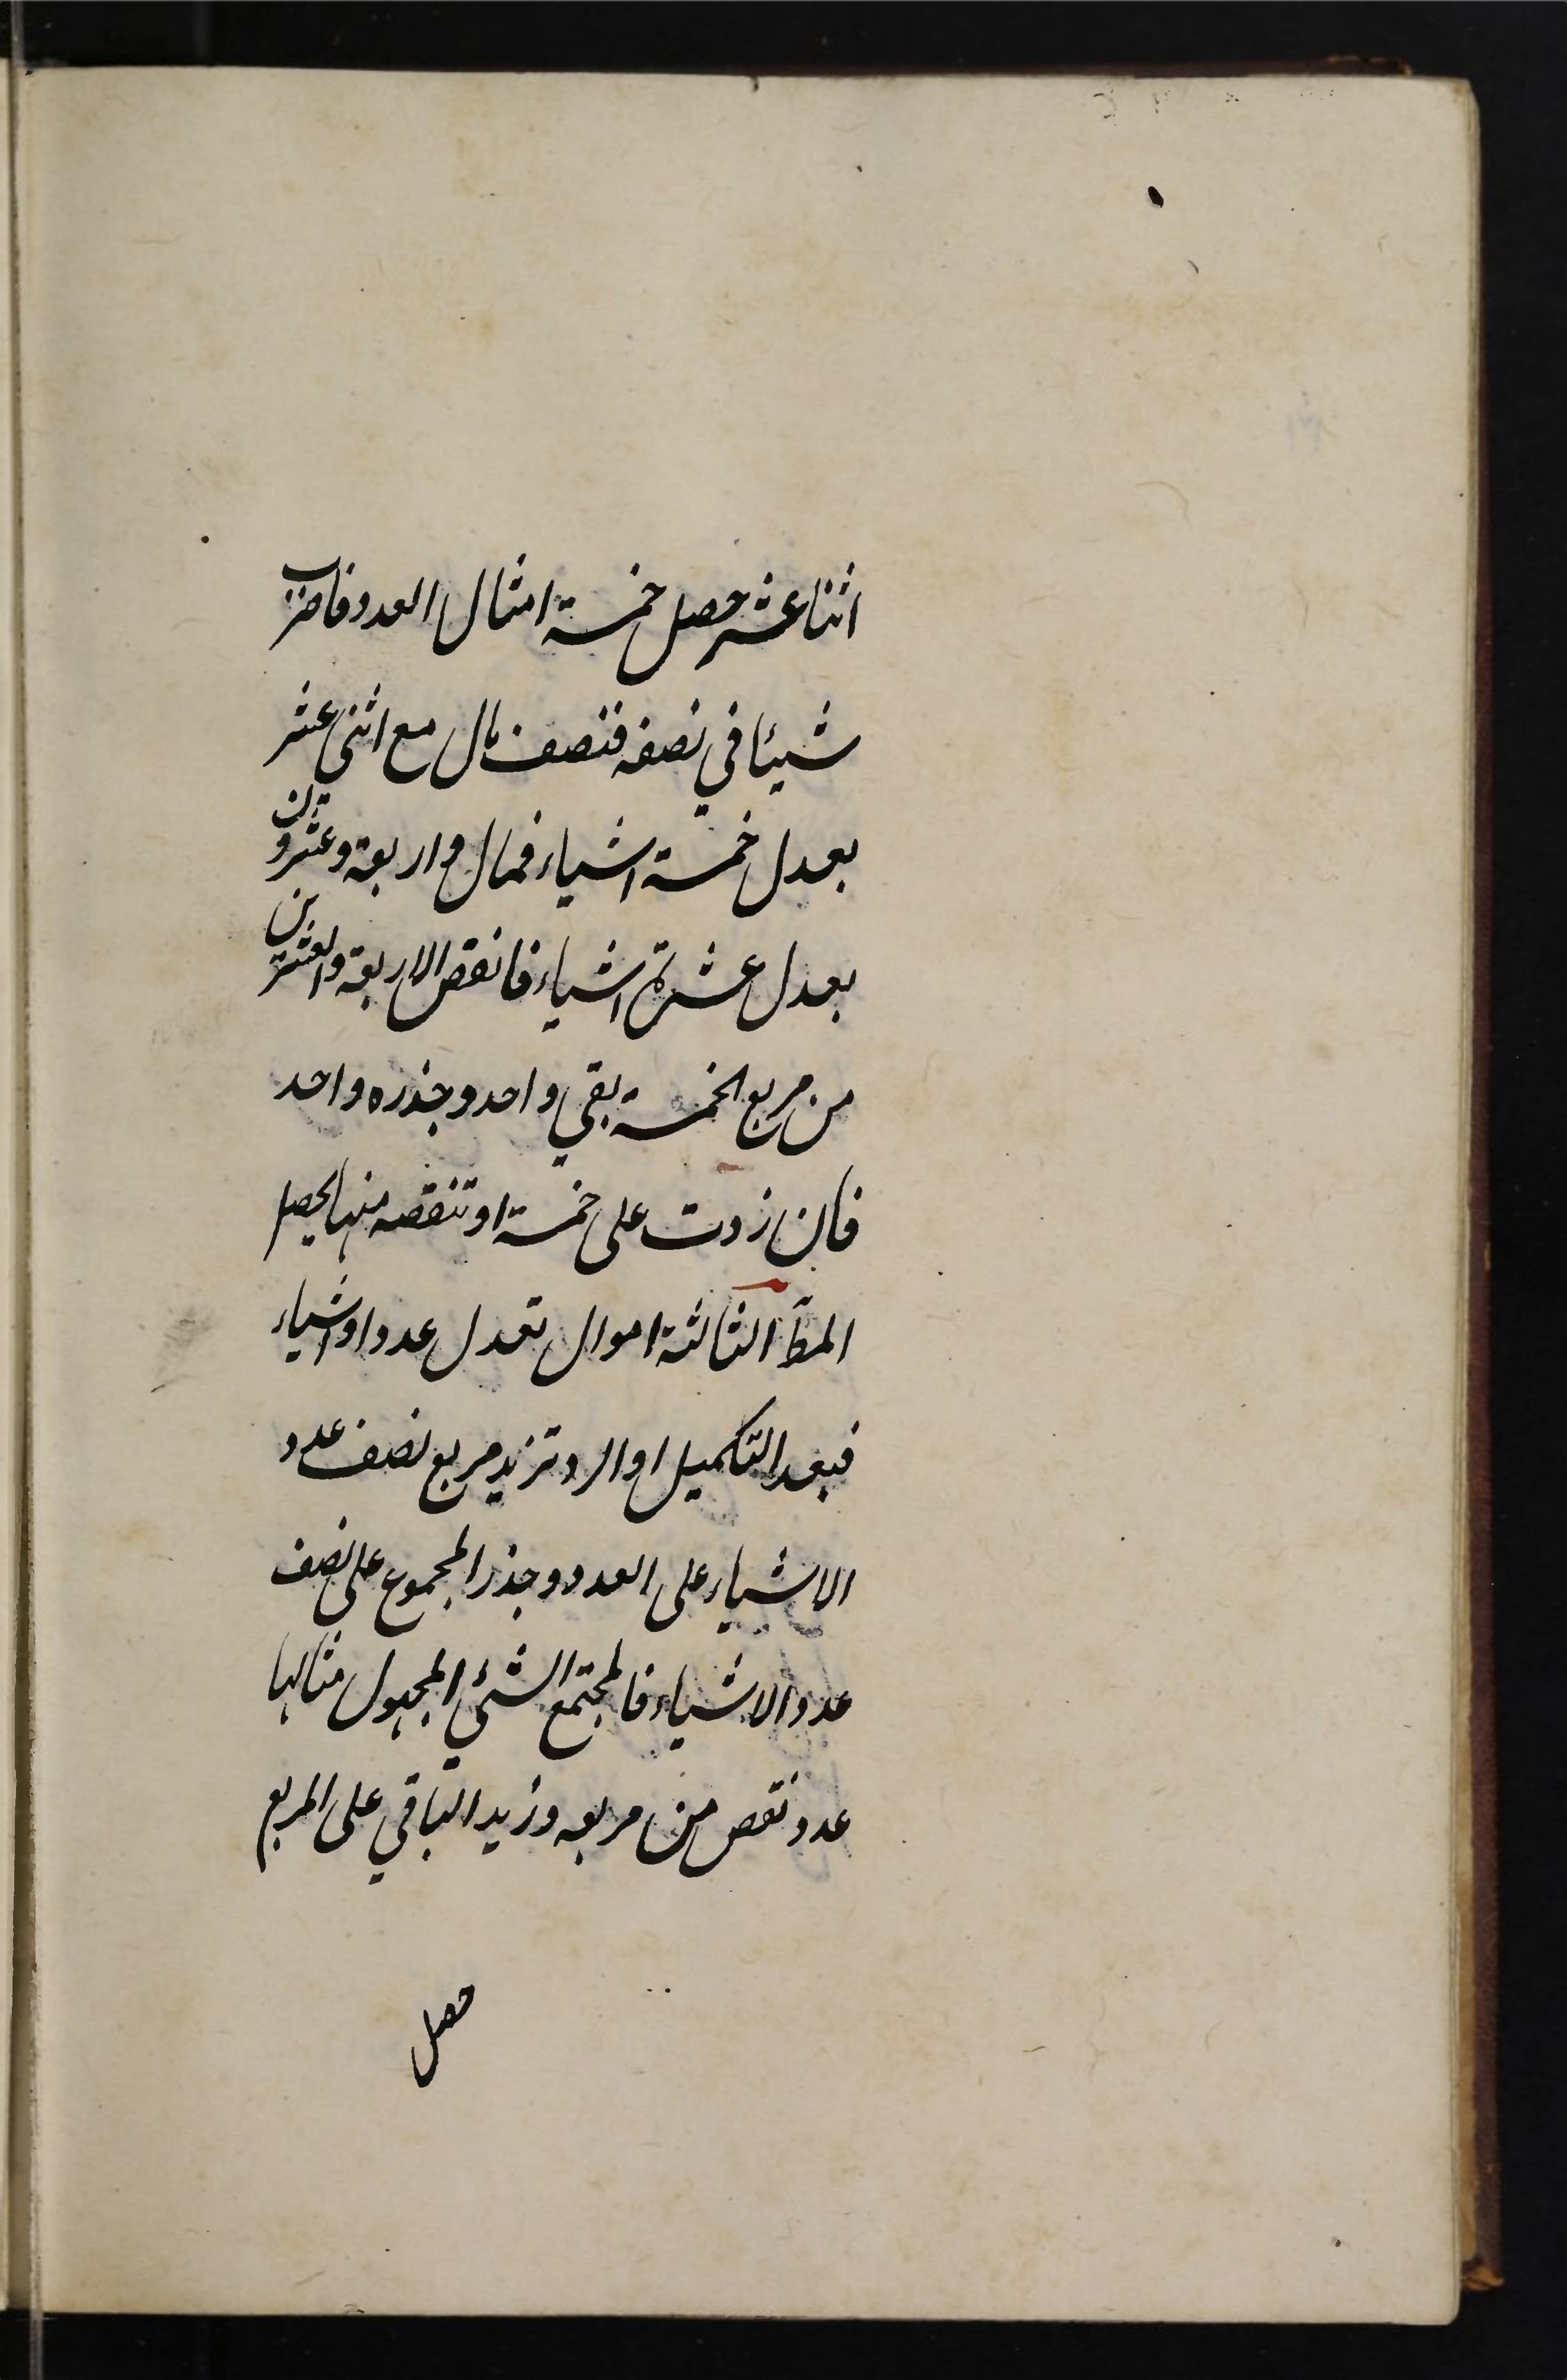 اثنا عشر حصل خمسة امثال العدد فاضرب
شيئا في نصفه فنصف مال مع اثني عشر
يعدل خمسة اشياء فمال واربعة وعشرون
يعدل عشرة اشياء فانقص الاربعة والعشرين
من مربع الخمسة بقي واحد وجذره واحد
فان زدت على خمسة او تنقصه منها يحصل
المط الثالثة اموال تعدل عددا واشياء
فبعد التكميل او الرد تزيد مربع نصف عدد
الاشياء على العدد وجذر المجموع على نصف
عدد الاشياء فالمجتمع الشيء المجهول مثالها
عدد نقص من مربعه وزيد الباقي على المربع
حصل